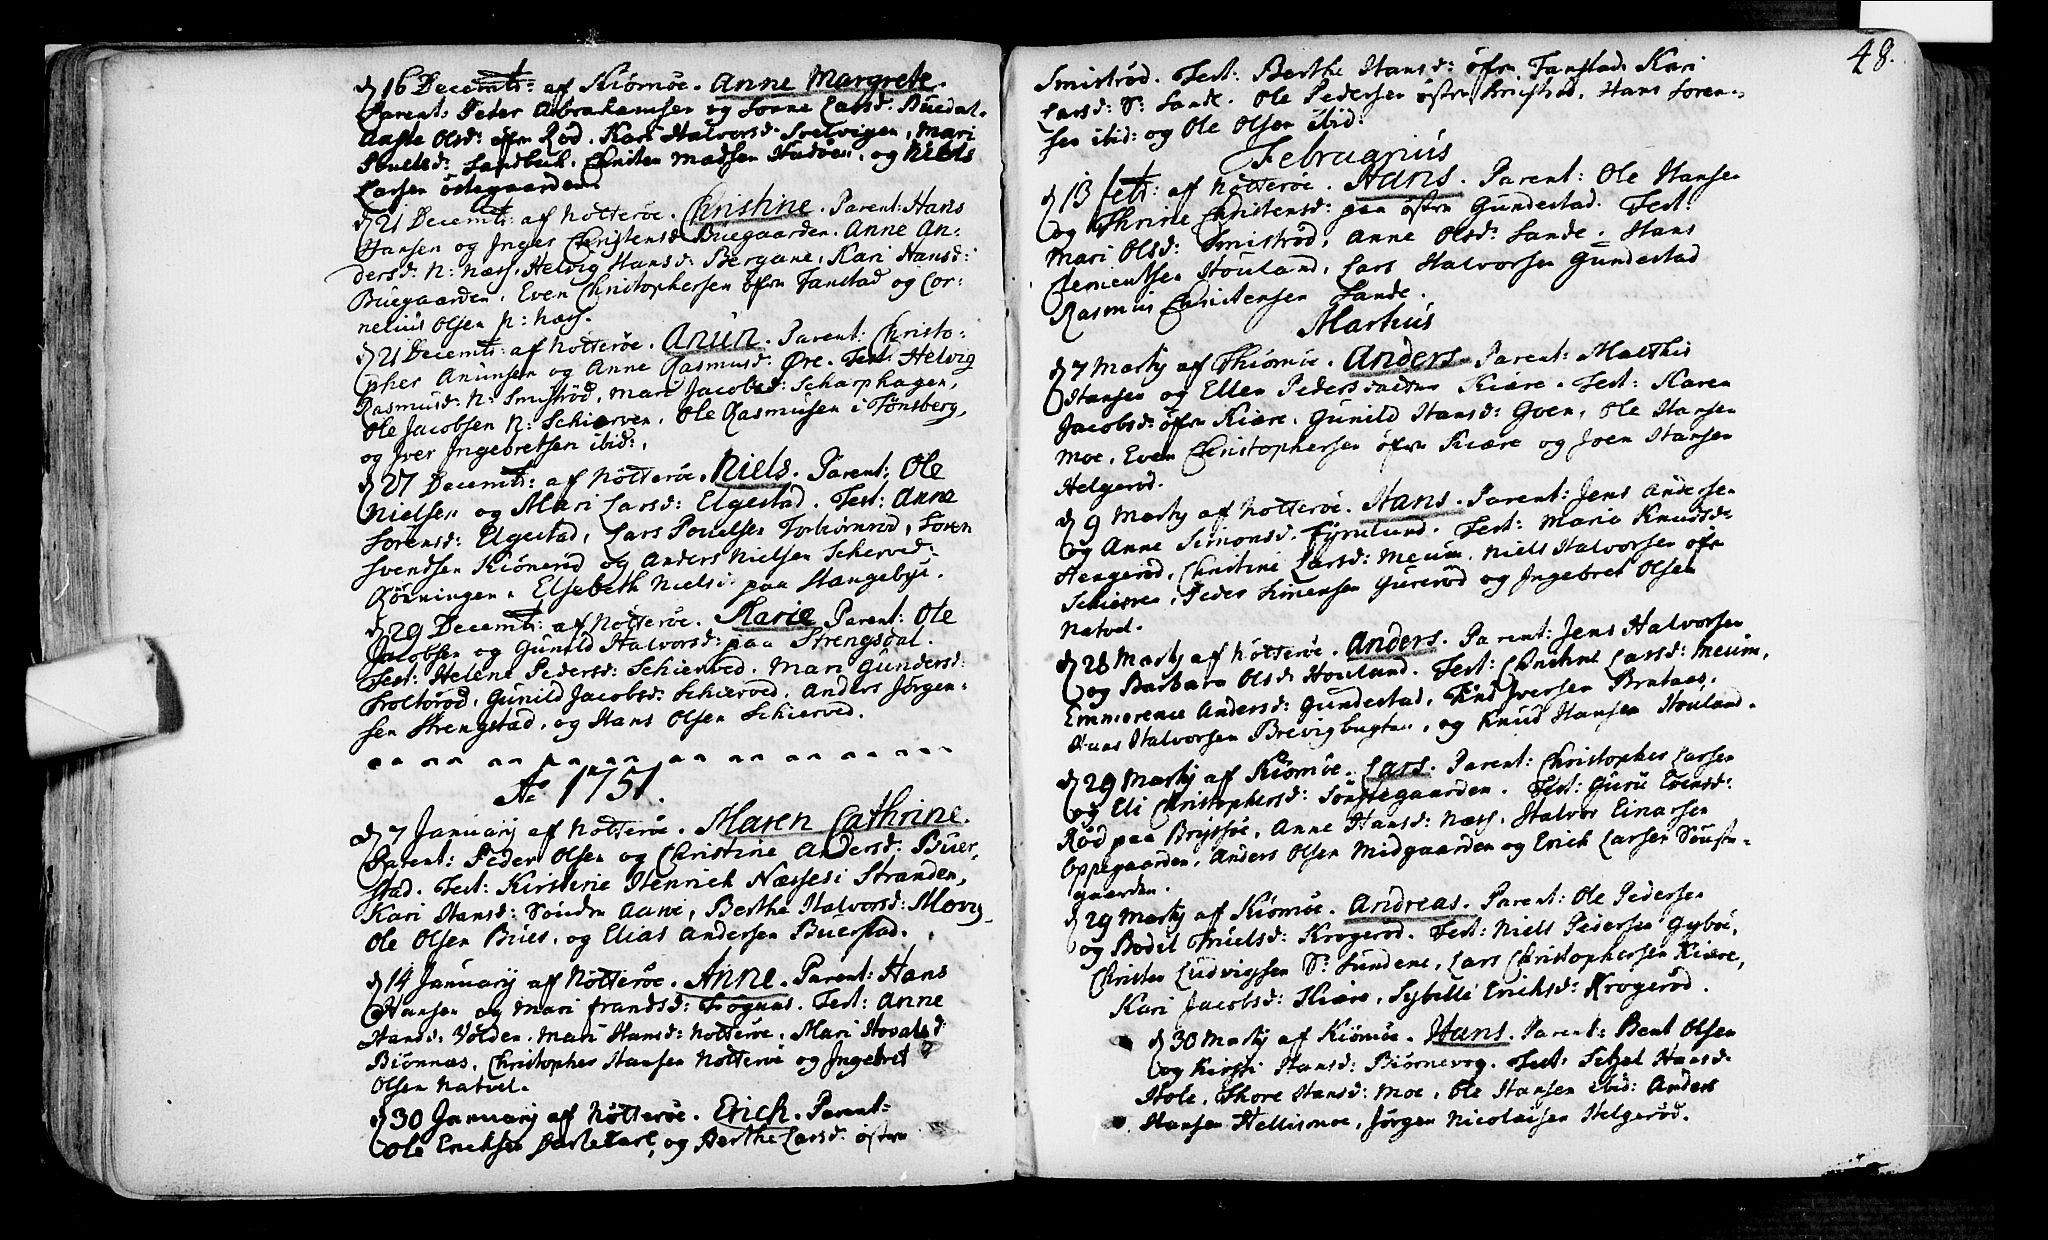 d 16 Decembr: af Kiömöe. Anne Margrete.
Parent: Peder Abrahamsen og Sonne Larsd: Buedal.
Aasle Olsd: öfre Röd. Kari Halvorsd: Svelvigen, Mari
Pouelsd: Sandbech. Christen Madsen Hudöe, og Niels
Larsen östegaarden.
d 21 Decembr: af Nötteröe. Christine. Parent: Hans
Hansen og Inger Christensd: Buegaarden. Anne An-
dersd: N: Næss, Helvig Hansd: Bergane, Kari Hansd:
Buegaarden, Even Christophersen öfre Tanstad og Cor-
nelius Olsen N: Næss.
d 21 Decembr: af Nötteröe. Anun. Parent: Christo-
pher Anunsen og Anne Rasmusd: Øre. Test: Helvig
Rasmusd: N: Smiströd, Mari Jacobsd: Scharphagen,
Ole Jacobsen N: Schierven, Ole Rasmusen i Tönsberg,
og Iver Ingebretsen ibid:.
d 27 Decembr: af Nötteröe. Niels. Parent: Ole
Nielsen og Mari Larsd: Elgestad. Test: Anne
Sorensd: Elgestad, Lars Pouelsen Torbiörnröd, Soren
Svendsen Kiöneröd og Anders Nielsen Scherved:
Rönningen. Elsebeth Nielsd: paa Stangebye.
d 29 Decembr: af Nötteröe. Marie Parent: Ole
Jacobsen og Gunild Halvorsd: paa Strengsdal.
Test: Helene Pedersd: Schierved. Mari Gundersd:
Soltöröd, Gunild Jacobsd: Schierved, Anders Jörgen-
sen Strengstad, og Hans Olsen Schierved.
Ao 1751.
d 7 Januarij af Nötteröe. Maren Cathrine.
Parent: Peder Olsen og Christine Andersd: Buer-
stad. Test: Kirstine Henrich Næsses i Stranden,
Kari Hansd: Söndre Aane, Berthe Halvorsd: Movig,
Ole Olsen Bues, og Elias Andersen Buerstad.
d 14 Januarij af Nötteröe. Anne. Parent: Hans
Hansen og Mari Frandsd: Fögnæs. Test: Anne
Hansd: Volden. Mari Hansd: Nötteröe. Mari Hovalsd:
Biönnæs, Christopher Hansen Nötteröe og Ingebret
Olsen Natvel.
d 30 Januarij af Nötteröe. Erich. Parent:
Ole Erichsen og Berthe Larsd: östre
48.
Smiströd. Test: Berthe Hansd: öfre Tanstad. Kari
Larsd: S: Sande. Ole Pedersen östre Smiströd, Hans Soren-
sen ibid: og Ole Olsen ibid:
Februarius
d 13 Febr: af Nötteröe. Hans. Parent: Ole Hansen
og Thrine Christensd: paa östre Gundestad. Test:
Mari Olsd: Smiströd, Anne Olsd: Sande. Hans
Clementsen Houland, Lars Halvorsen Gundestad
Rasmus Christensen Sande.
Martius
d 7 Martij af Thiömöe. Anders. Parent: Matthis
Hansen og Ellen Pedersdatter Kiære. Test: Karen
Jacobsd: öfre Kiære. Gunild Hansd: Goen, Ole Hansen
Moe, Even Christophersen öfre Kiære og Joen Hansen
Helgeröd.
d 9 Martij af Nötteröe. Hans. Parent: Jens Andersen
og Anne Simonsd: Fyrulund. Test: Maria Knudsd:
Hengeröd, Christine Larsd: Meum, Niels Halvorsen öfre
Schierve, Peder Simensen Gureröd og Ingebret Olsen
Natvel.
d 28 Martij af Nötteröe. Anders. Parent: Jens Halvorsen
og Barbara Olsd: Houland. Test: Christine Larsd: Meum,
Emmerence Andersd: Gundestad, Knud Iversen Brataas,
Hans Halvorsen Brevigbugten, og Knud Hansen Houland.
d 29 Martij af Kiömöe. Lars. Parent: Christopher Larsen
og Eli Christophersd: Sönstegaarden. Test: Guru Evensd:
Röd paa Brijsöe, Anne Hansd: Næss, Halvor Einarsen
Oppegaarden, Anders Olsen Midgaarden og Erich Larsen Sönste-
gaarden.
d 29 Martij af Kiömöe. Andreas. Parent: Ole Pedersen
og Bodil Truelsd: Krogeröd. Test: Niels Pedersen Gyböe,
Christen Ludvigsen S: Sundene, Lars Christophersen Kiære,
Kari Jacobsd: Kiære, Sybille Erichsd: Krogeröd.
d 30 Martij af Kiömöe. Hans. Parent: Bent Olsen
og Kirsti Hansd: Biörnevog. Test: Sidzel Hansd:
Hole, Thore Hansd: Moe, Ole Hansen ibid: Anders
Hansen Hellismoe, Jörgen Nicolaisen Helgeröd.